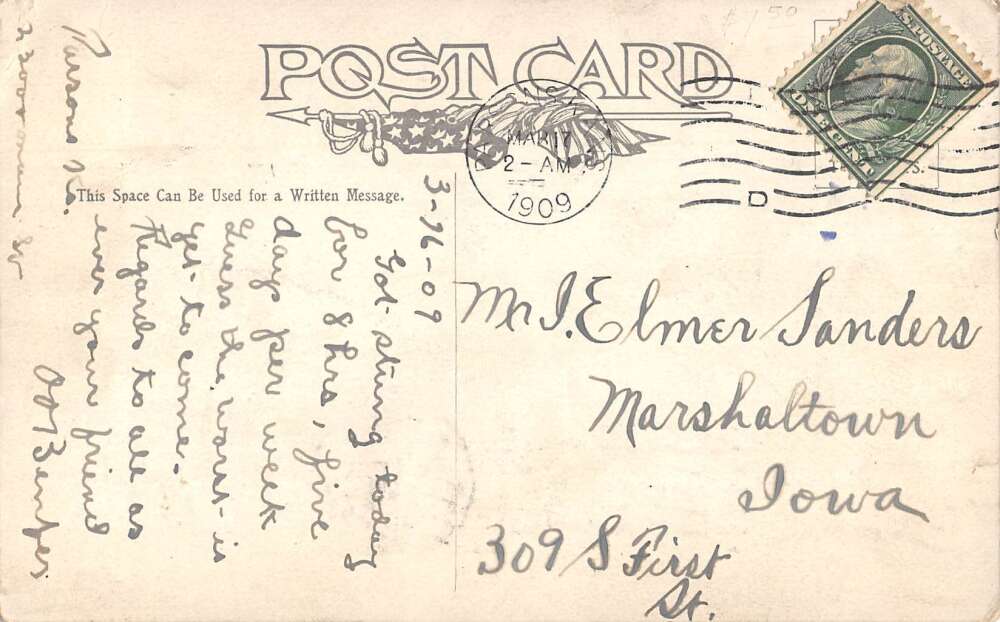 $1.50
POST CARD
U.S. POSTAGE
PARSONS, KANS.
MAR 17
2 - AM
1909
D
This Space Can Be Used for a Written Message.
3-16-09
Got stung today
for 8 hrs, five
days per week
Guess the worst is
yet to come.
Regards to all as
ever your friend
Parsons
Mr J. Elmer Sanders
Marshaltown
Iowa
309 S First
St.